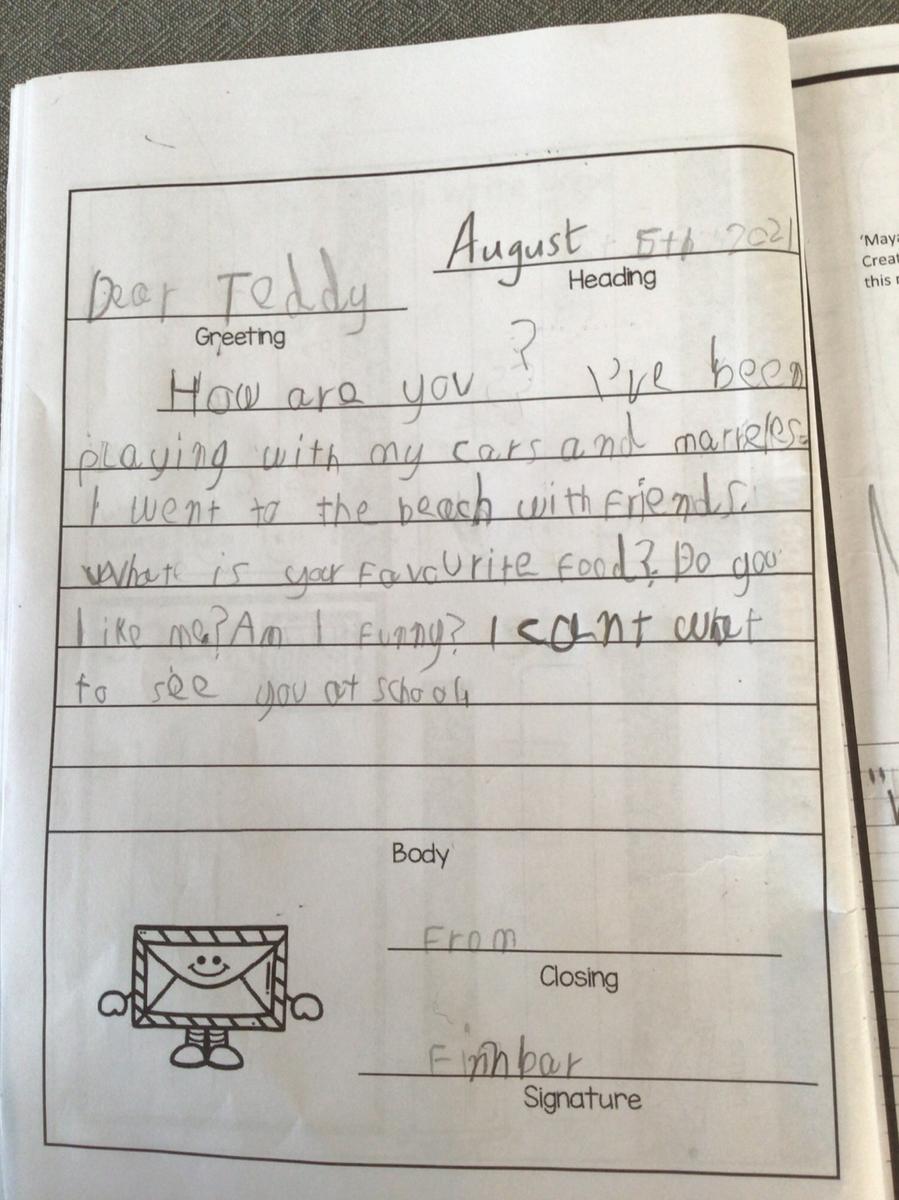 August 5th 2021
Heading
Dear Teddy
Greeting
How are you? I've been
playing with my cars and marreles.
I went to the beach with friends.
What is your Favourite food? Do you
like me? Am I funny? I cant
to see you at school
Body
From
Closing
Finnbar
Signature
'Maya
Creat
this